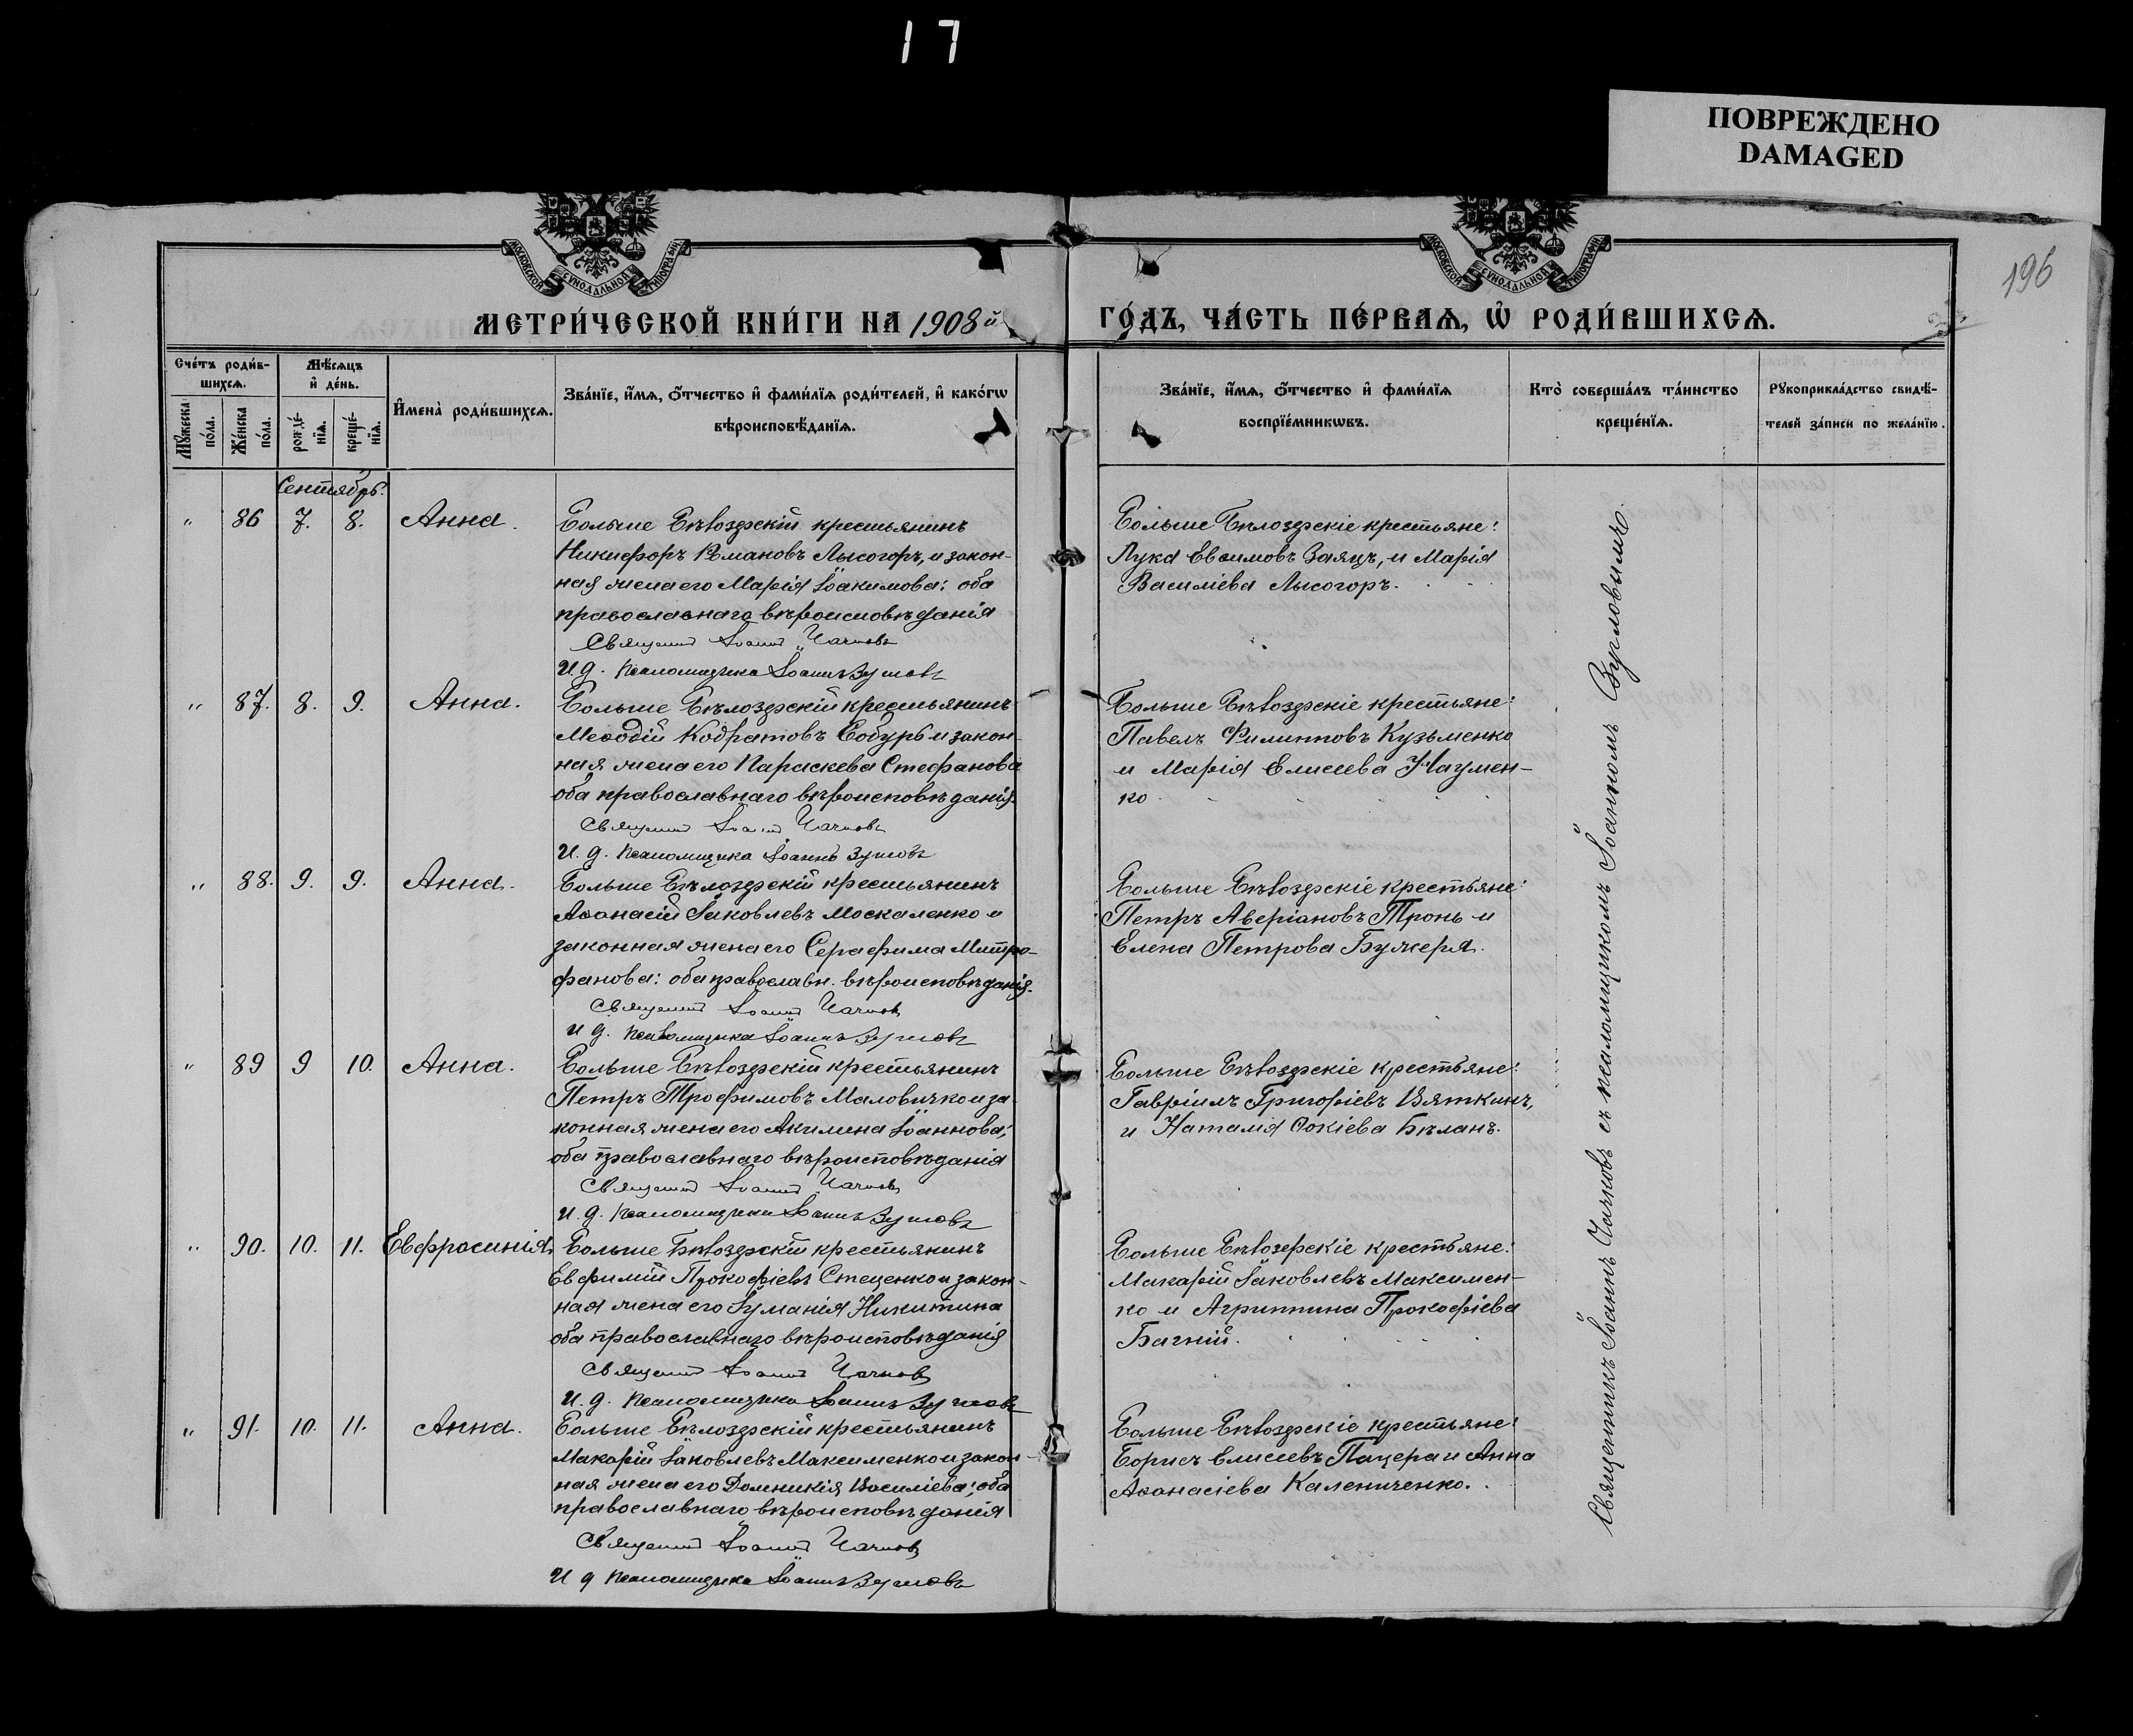 17
ПОВРЕЖДЕНО
DAMAGED
196
МОСКОВСКОЙ СѴНОДАЛЬНОЙ ТИПОГРАФІИ
МОСКОВСКОЙ СѴНОДАЛЬНОЙ ТИПОГРАФІИ
МЕТРИ́ЧЕСКОЙ КНИ́ГИ НА 1908 й
ГО́ДЪ, ЧА́СТЬ ПЕ́РВАѦ, Ѡ РОДИ́ВШИХСѦ.
Сче́тъ роди́в-
шихсѧ.
Мѣ́сѧцъ
и҆ де́нь.
Мꙋ́жеска по́ла.
Же́нска по́ла.
рожде́-нїѧ.
креще́-нїѧ.
И҆мена̀ роди́вшихсѧ.
Зва́нїе, и҆́мѧ, ѻ҆́тчество и҆ фами́лїѧ роди́телей, и҆ како́гѡ
вѣроисповѣ́данїѧ.
Зва́нїе, и҆́мѧ, ѻ҆́тчество и҆ фами́лїѧ
воспрїе́мникѡвъ.
Кто̀ соверша́лъ та́инство
креще́нїѧ.
Рꙋкоприкла́дство свидѣ́-
телей за́писи по жела́нїю.
Сентябрь.
" 86 7. 8. Анна.
Больше Бѣлоздрскій крестьянинъ
Никифоръ Романовъ Лысогоръ, и закон-
ная жена его Марія Іоакимова: оба
православнаго вѣроисповѣданія
Священник Іоанн Чачковъ
И. д. псаломщика Іоаннъ
Больше Бѣлоздрскіе крестьяне:
Лука Евѳимовъ Заяцъ, и Марія
Василіева Лысогоръ.
" 87. 8. 9. Анна.
Больше Бѣлоздрскій крестьянинъ
Меѳодій Кодратовъ Собурь и закон-
ная жена его Параскева Стефанова
оба православнаго вѣроисповѣданія.
Священник Іоанн Чачковъ
И. д. псаломщика Іоаннъ
Больше Бѣлоздрскіе крестьяне:
Павелъ Филипповъ Кузьменко
и Марія Елисеева Наумен-
ко
" 88. 9. 9. Анна.
Больше Бѣлоздрскій крестьянинъ
Аѳанасій Іаковлевъ Москаленко и
законная жена его Серафима Митро-
фанова: оба православн. вѣроисповѣданія.
Священник Іоанн Чачковъ
И д. псаломщика Іоаннъ
Больше Бѣлоздрскіе крестьяне:
Петръ Аверіановъ Тронь и
Елена Петрова Бужера.
" 89 9 10. Анна.
Больше Бѣлоздрскій крестьянинъ
Петръ Трофимовъ Маловичко и за-
конная жена его Акилина Іоаннова;
оба православнаго вѣроисповѣданія
Священник Іоанн Чачковъ
И. д. псаломщика Іоаннъ
Больше Бѣлоздрскіе крестьяне:
Гавріилъ Григоріевъ Вяткинъ,
и Наталія Фокіева Бѣланъ.
" 90. 10. 11. Евфросинія
Больше Бѣлоздрскій крестьянинъ
Евфимій Прокофіевъ Стеценко и закон-
ная жена его Іуманія Никитина
оба православнаго вѣроисповѣданія
Священник Іоанн Чачковъ
И. д. псаломщика Іоаннъ
Больше Бѣлозерскіе крестьяне:
Макарій Іаковлевъ Максимен-
ко и Агриппина Прокофіева
Багній.
" 91. 10. 11. Анна.
Больше Бѣлоздрскій крестьянинъ
Макарій Іаковлевъ Максименко и закон-
ная жена его Домникія Василіева; оба
православнаго вѣроисповѣданія
Священник Іоанн Чачковъ
И д псаломщика Іоаннъ
Больше Бѣлоздрскіе крестьяне:
Борисъ Елисеевъ Пацера и Анна
Аѳанасіева Калениченко.
Священникъ Іоаннъ Чачковъ съ псаломщикомъ Іоанномъ